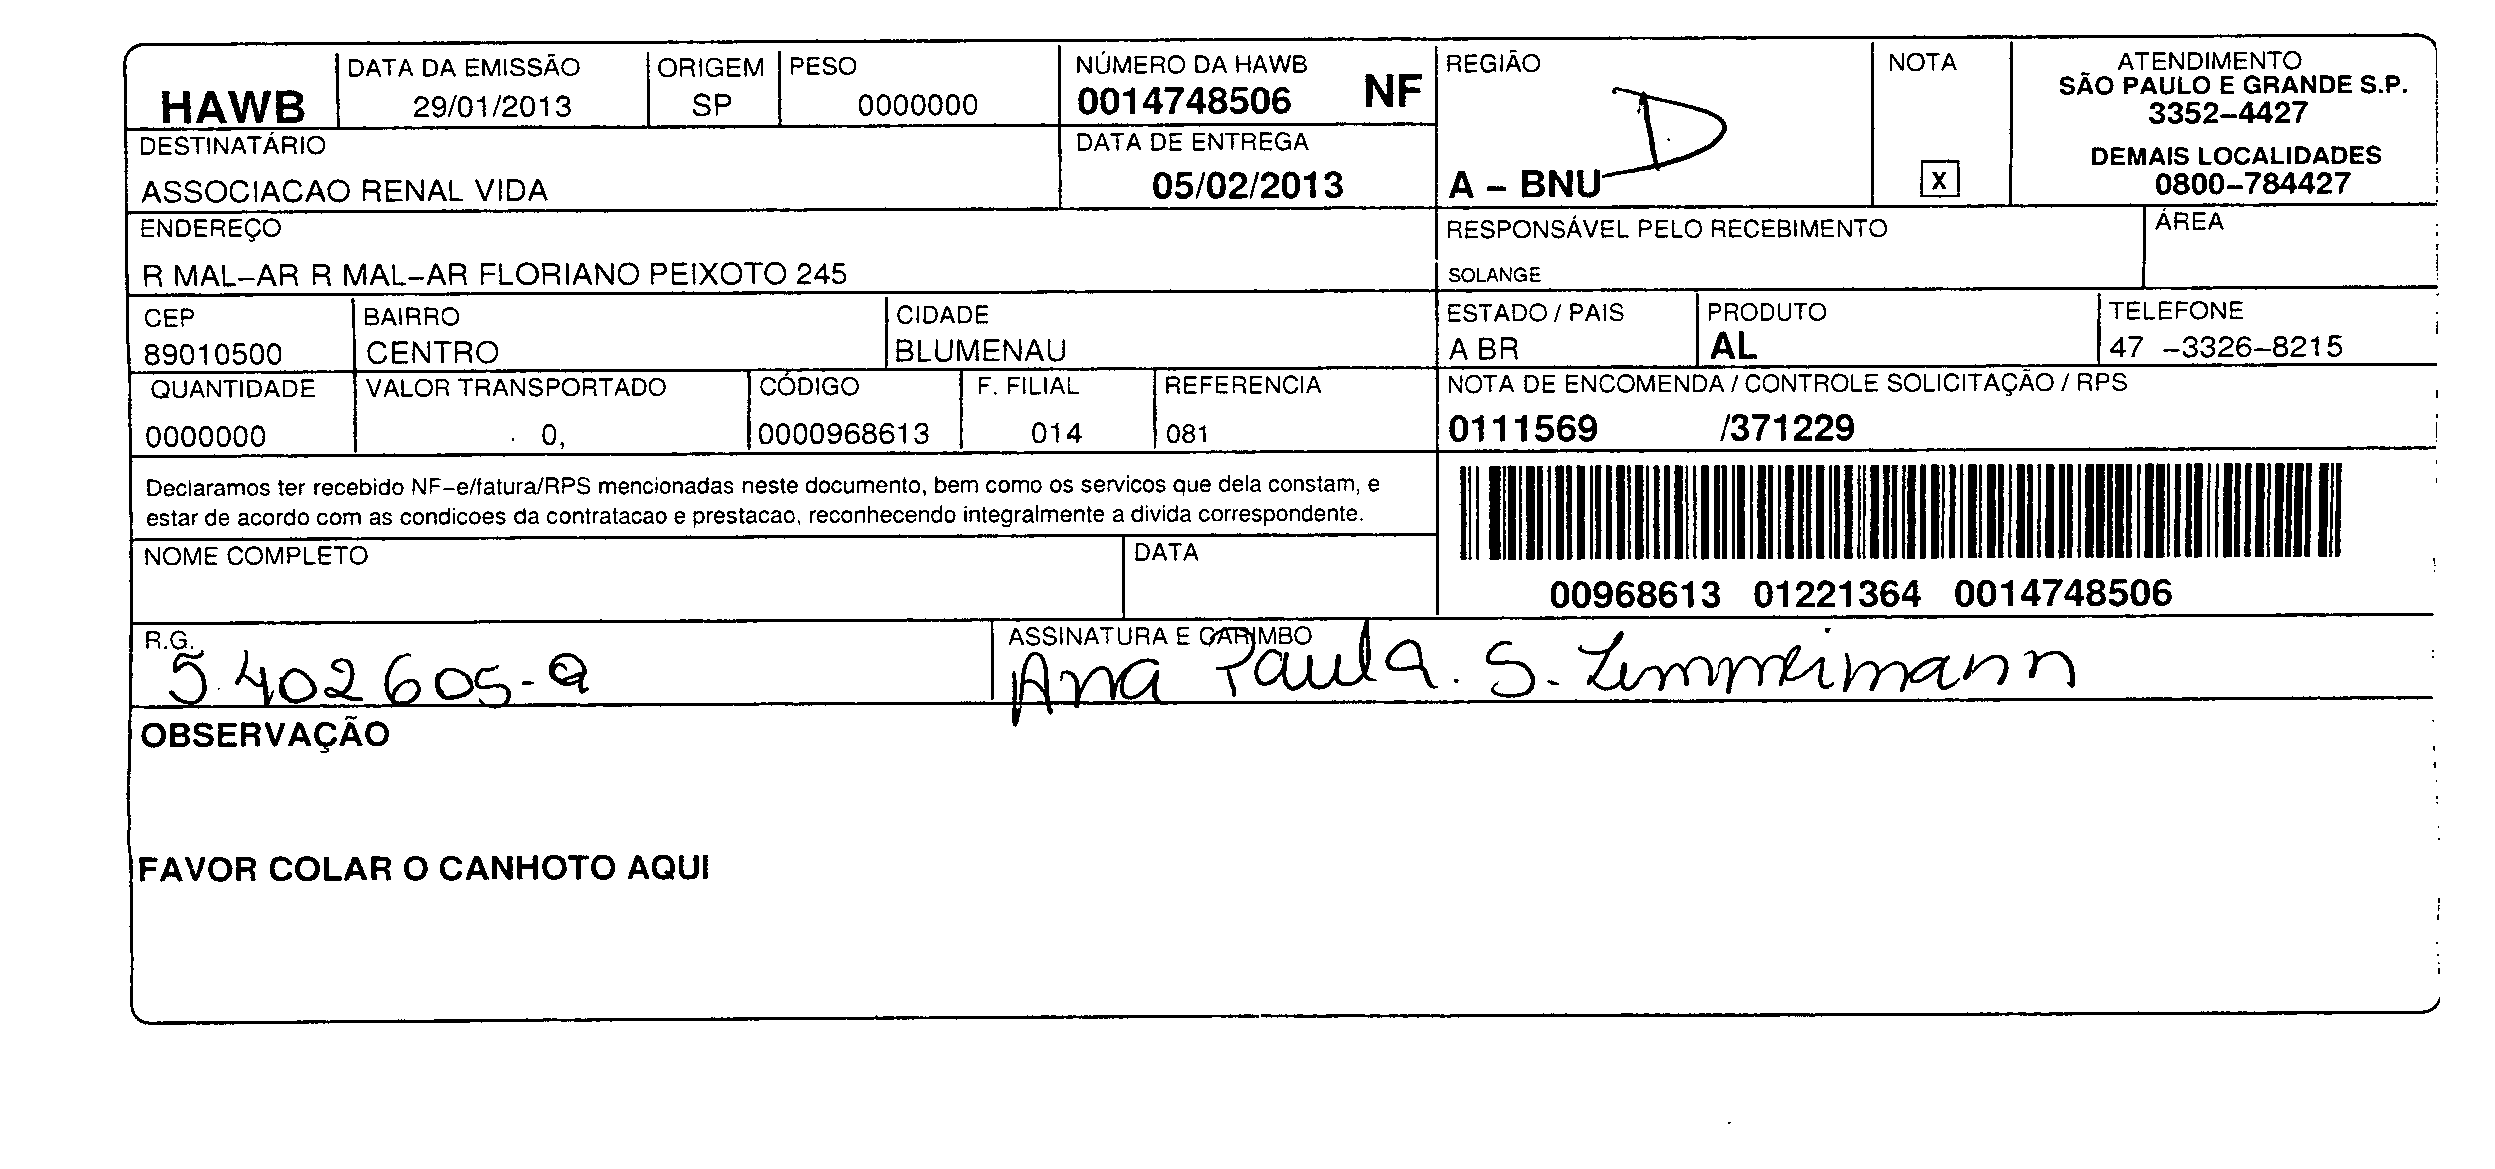 HAWB
DATA DA EMISSÃO
29/01/2013
ORIGEM
SP
PESO
0000000
NÚMERO DA HAWB
0014748506 NF
REGIÃO
A – BNU
NOTA
X
ATENDIMENTO
SÃO PAULO E GRANDE S.P.
3352–4427
DEMAIS LOCALIDADES
0800–784427
DESTINATÁRIO
ASSOCIACAO RENAL VIDA
DATA DE ENTREGA
05/02/2013
ENDEREÇO
R MAL–AR R MAL–AR FLORIANO PEIXOTO 245
RESPONSÁVEL PELO RECEBIMENTO
SOLANGE
ÁREA
CEP
89010500
BAIRRO
CENTRO
CIDADE
BLUMENAU
ESTADO / PAIS
A BR
PRODUTO
AL
TELEFONE
47 –3326–8215
QUANTIDADE
0000000
VALOR TRANSPORTADO
0,
CÓDIGO
0000968613
F. FILIAL
014
REFERENCIA
081
NOTA DE ENCOMENDA / CONTROLE SOLICITAÇÃO / RPS
0111569 /371229
Declaramos ter recebido NF–e/fatura/RPS mencionadas neste documento, bem como os servicos que dela constam, e
estar de acordo com as condicoes da contratacao e prestacao, reconhecendo integralmente a divida correspondente.
00968613 01221364 0014748506
NOME COMPLETO
DATA
R.G.
5.402605-
ASSINATURA E CARIMBO
Ana Paula. S. Zimmermann
OBSERVAÇÃO
FAVOR COLAR O CANHOTO AQUI